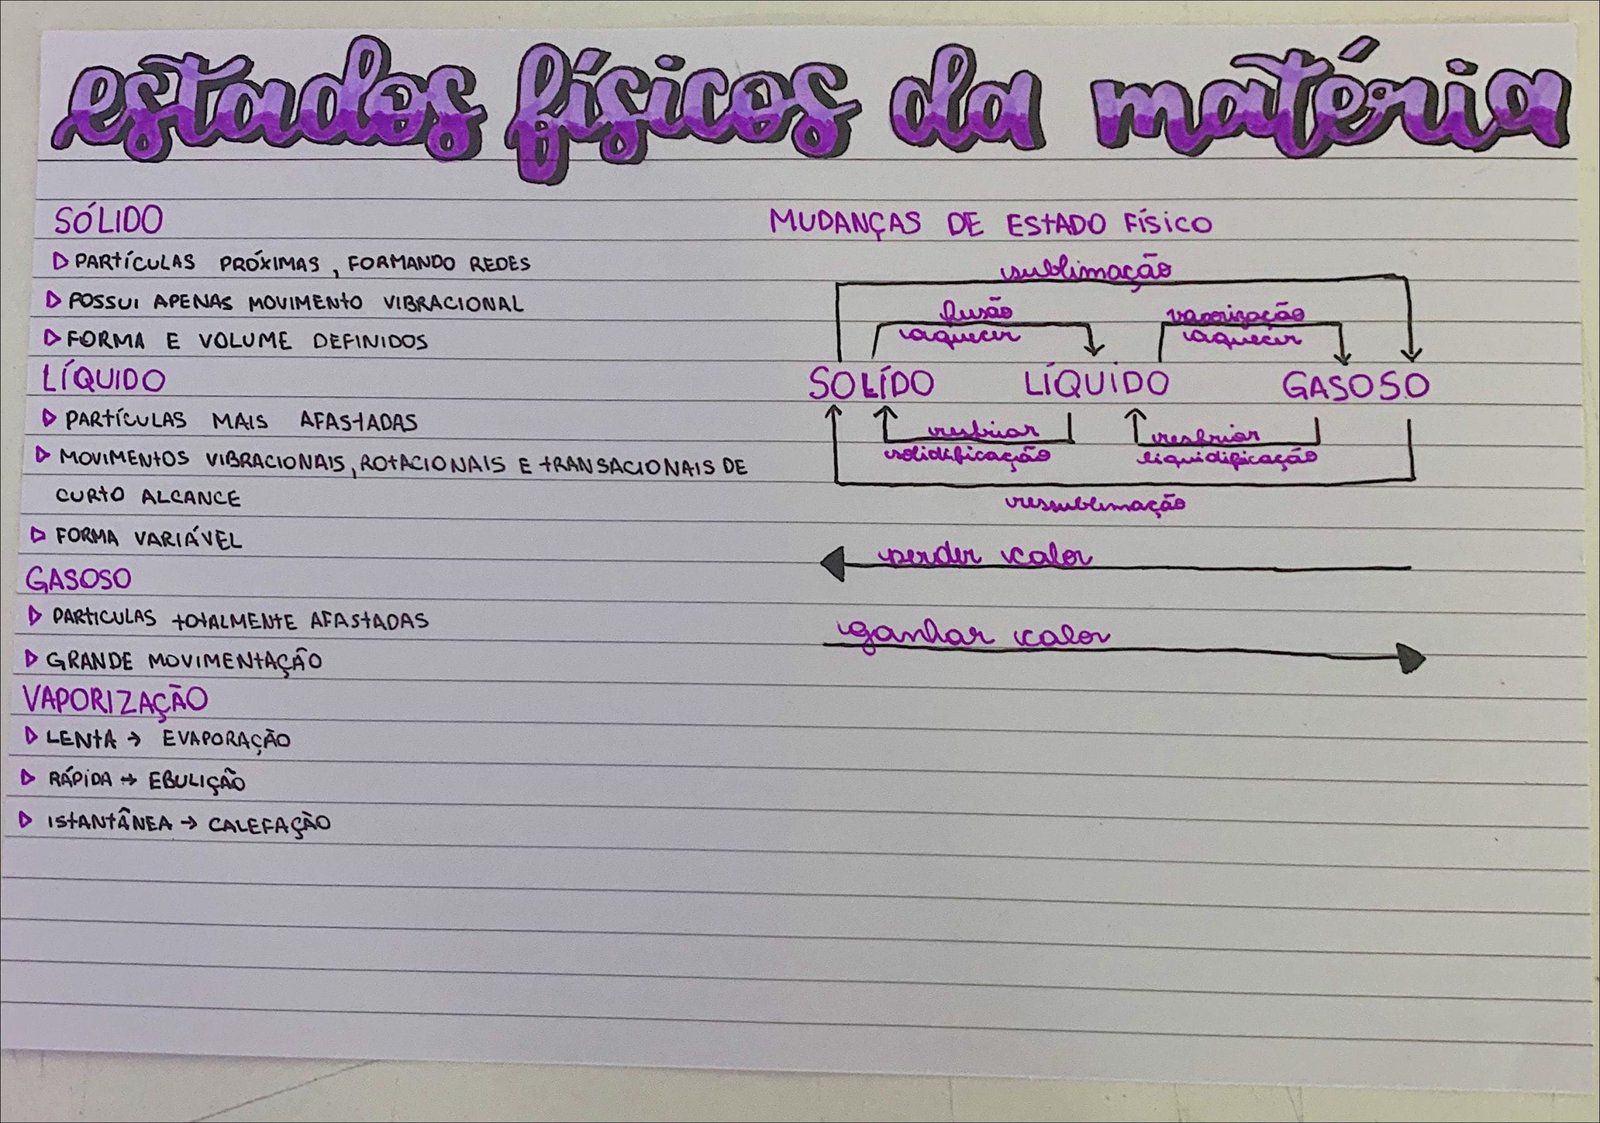 estados físicos da matéria
SÓLIDO
PARTÍCULAS PRÓXIMAS, FORMANDO REDES
POSSUI APENAS MOVIMENTO VIBRACIONAL
FORMA E VOLUME DEFINIDOS
LÍQUIDO
PARTÍCULAS MAIS AFASTADAS
MOVIMENTOS VIBRACIONAIS, ROTACIONAIS E TRANSACIONAIS DE
CURTO ALCANCE
FORMA VARIÁVEL
GASOSO
PARTICULAS TOTALMENTE AFASTADAS
GRANDE MOVIMENTAÇÃO
VAPORIZAÇÃO
LENTA → EVAPORAÇÃO
RÁPIDA → EBULIÇÃO
ISTANTÂNEA → CALEFAÇÃO
MUDANÇAS DE ESTADO FÍSICO
sublimação
fusão
aquecer
vaporização
aquecer
SOLÍDO LÍQUIDO GASOSO
resfriar
solidificação
resfriar
liquidificação
ressublimação
perder calor
ganhar calor